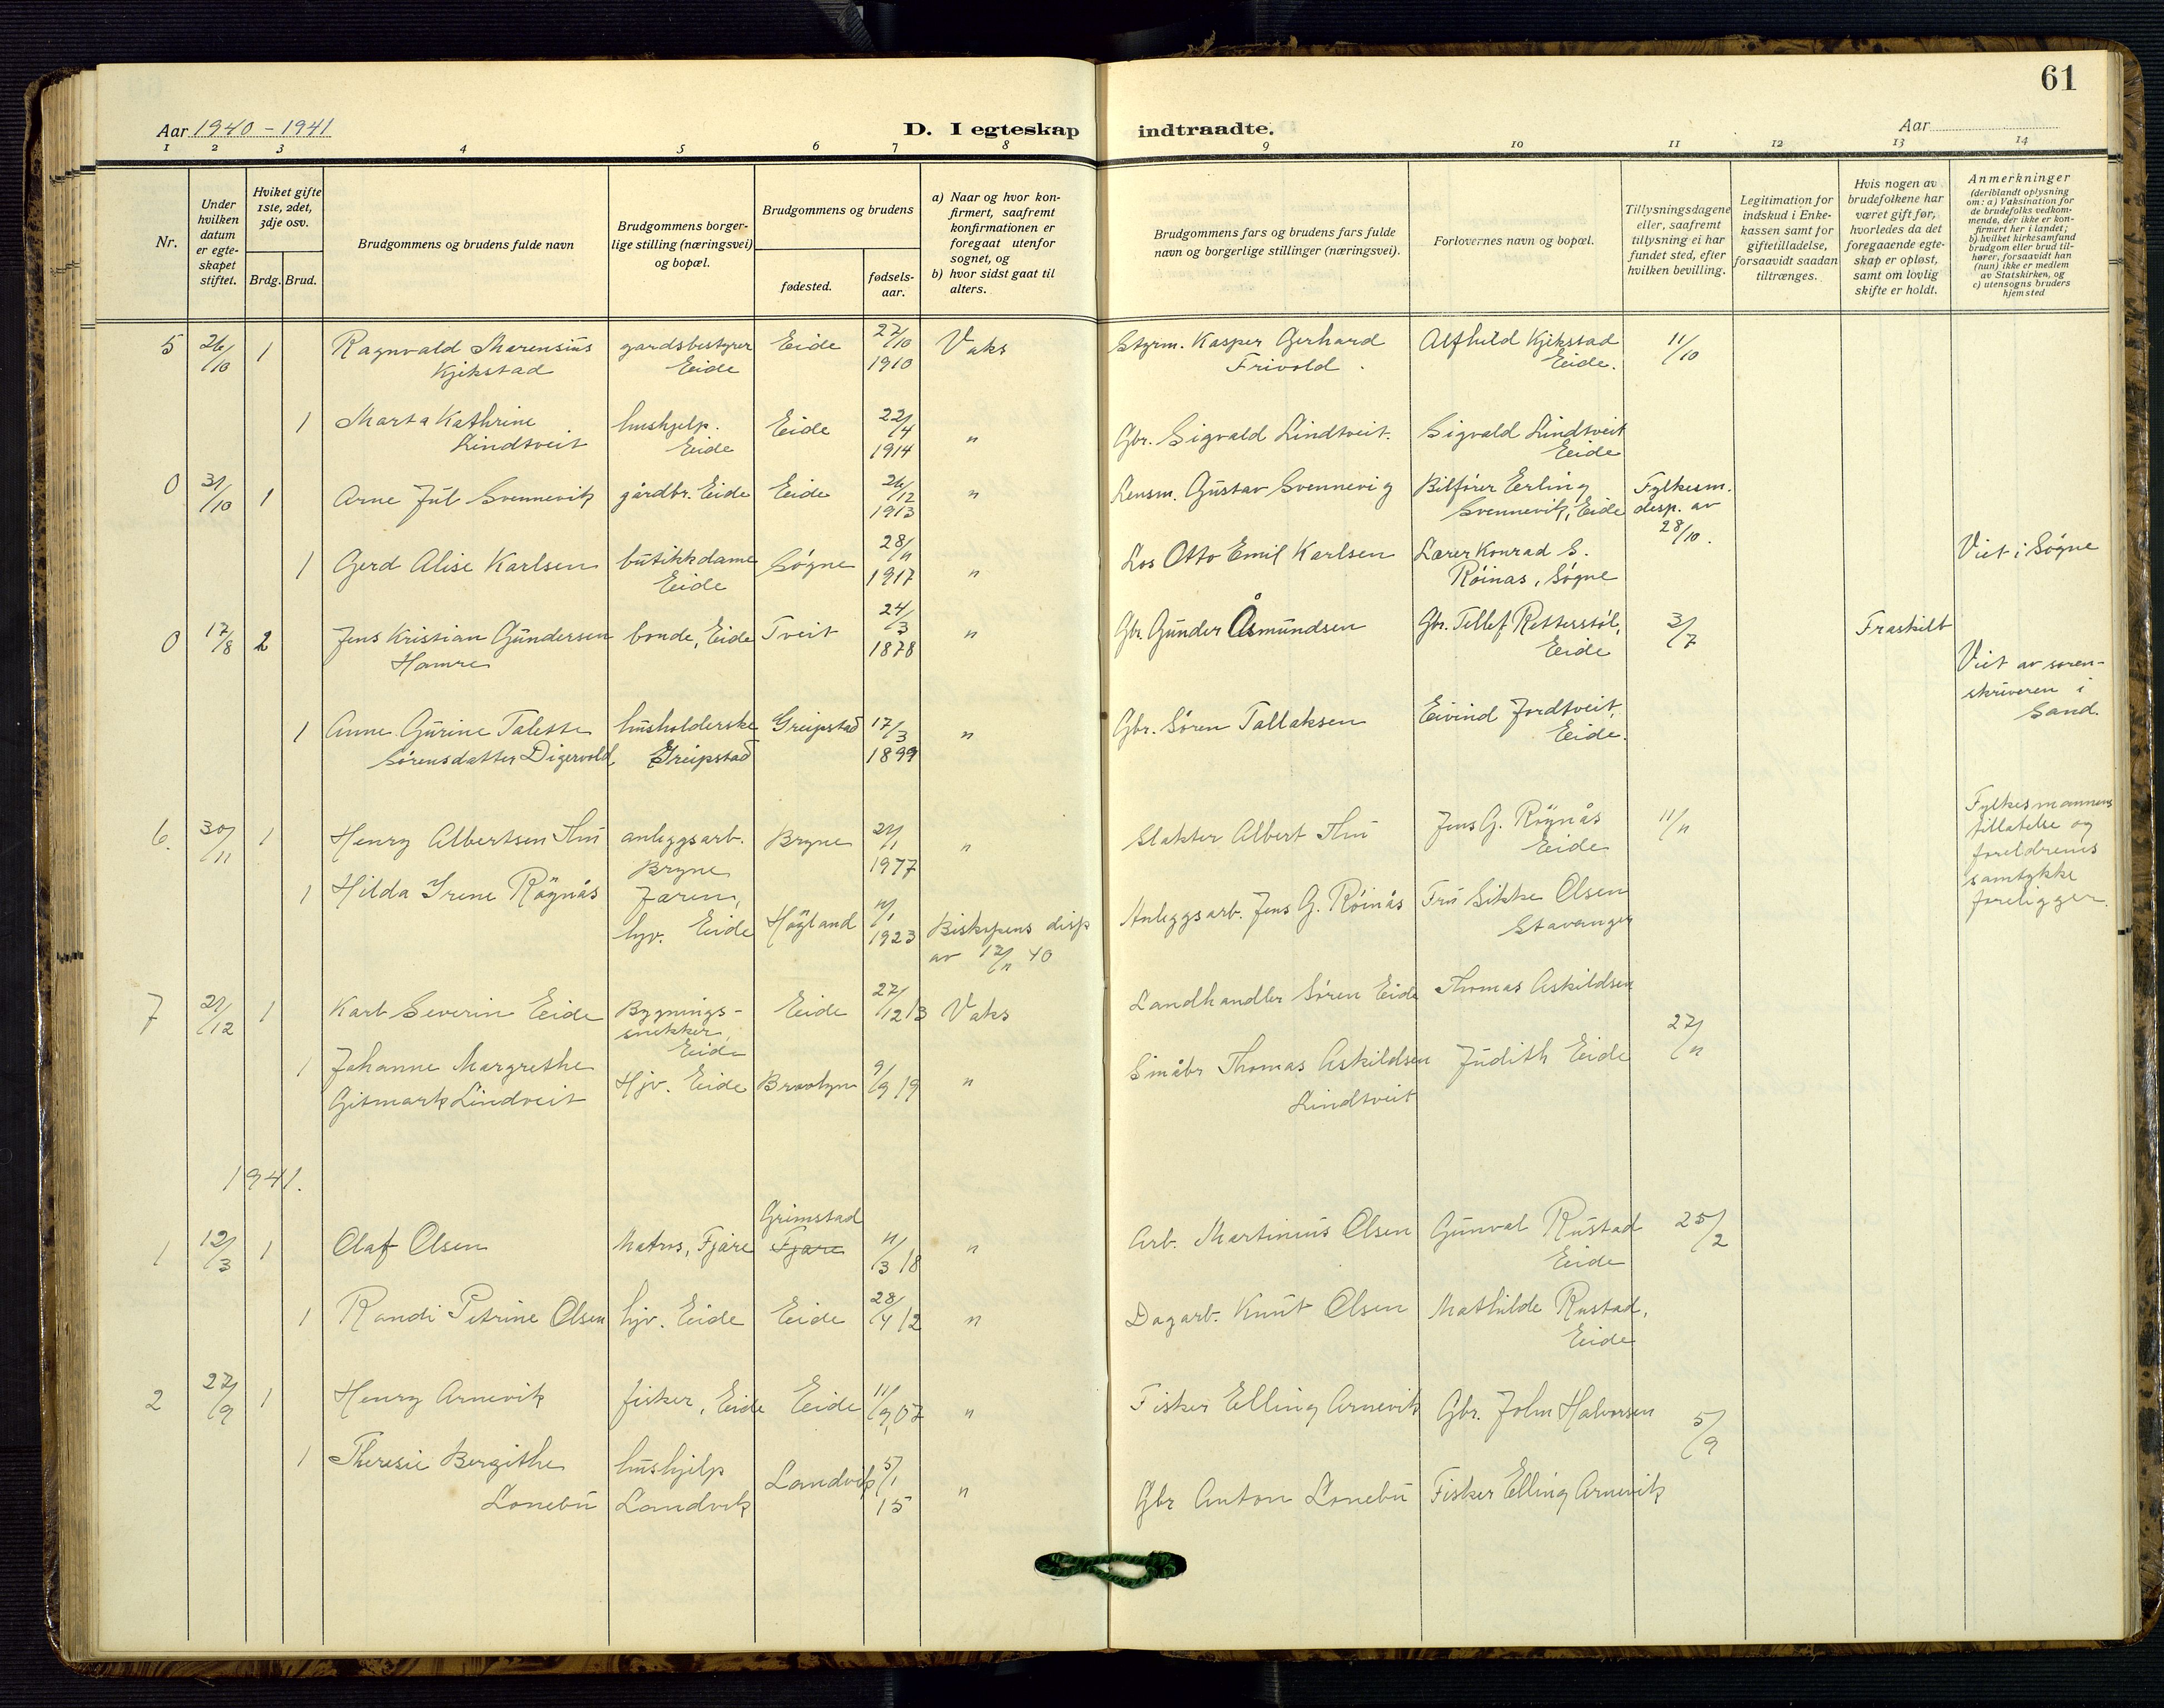 61
Aar 1940 - 1941
D. I egteskap indtraadte.
Aar
1 2 3 4 5 6 7 8 9 10 11 12 13 14
Nr.
Under hvilken datum er egteskapet stiftet.
Hviket gifte 1ste, 2det, 3dje osv.
Brdg. Brud.
Brudgommens og brudens fulde navn
Brudgommens borger-
lige stilling (næringsvei)
og bopæl.
Brudgommens og brudens
fødested.
fødsels-
aar.
a) Naar og hvor kon-
firmert, saafremt
konfirmationen er
foregaat utenfor
sognet, og
b) hvor sidst gaat til
alters.
Brudgommens fars og brudens fars fulde
navn og borgerlige stillinger (næringsvei).
Forlovernes navn og bopæl.
Tillysningsdagene
eller, saafremt
tillysning ei har
fundet sted, efter
hvilken bevilling.
Legitimation for
indskud i Enke-
kassen samt for
giftetilladelse,
forsaavidt saadan
tiltrænges.
Hvis nogen av
brudefolkene har
været gift før,
hvorledes da det
foregaaende egte-
skap er opløst,
samt om lovlig
skifte er holdt.
Anmerkninger
(deriblandt oplysning
om: a) Vaksination for
de brudefolks vedkom-
mende, der ikke er kon-
firmert her i landet;
b) hvilket kirkesamfund
brudgom eller brud til-
hører, forsaavidt han
(hun) ikke er medlem
av Statskirken, og
c) utensogns bruders
hjemsted
5 26/10 1 Ragnvald Marensius gardsbestyrer Eide 27/10 Vaks Styrm. Kasper Gerhard Alfhild Kjikstad 11/10
Kjikstad Eide 1910 Frivold. Eide.
1 Marta Kathrine hushjelp. Eide 22/4 " Gbr. Sigvald Lindtveit. Sigvald Lindtveit
Lindtveit Eide 1914 Eide
0 31/10 1 Arne Jul Svennevik gårdbr. Eide Eide 26/12 " Lensm. Gustav Svennevig Bilfører Erling Fylkesm.
1913 Svennevik, Eide desp. av
28/10.
1 Gerd Alise Karlsen butikkdame Søgne 28/11 " Los Otto Emil Karlsen Lærer Konrad S. Viet i Søgne
Eide 1917 Röinas, Søgne
0 17/8 2 Jens Kristian Gundersen bonde, Eide Tveit 24/3 " Gbr. Gunder Åsmundsen Gbr. Tellef Retterstøl, 3/7 Fraskilt
Hamre 1878 Eide
Viet av soren-
skriveren i
Sand.
1 Anne Gurine Talette husholderske Greipstad 17/3 " Gbr. Søren Tallaksen Eivind Jordtveit,
Sørensdatter Digervold, Greipstad 1899 Eide.
6. 30/11 1 Henry Albertsen Thu anleggsarb. Bryne 21/1 " Slakter Albert Thu Jens G. Röynås 11/11
Bryne Eide
Fylkesmannens
tillatelse og
foreldrenes
samtykke
foreligger.
1 Hilda Irene Röynås Jæren,
hjv. Eide Høgland 11/1 1923 Biskopens disp Anleggsarb. Jens G. Röinås Fru Sikke Olsen
av 12/11 40 Stavanger
7 21/12 1 Karl Severin Eide Bygnings- Eide 27/12 13 Vaks Landhandler Søren Eide Thomas Askildsen 27/11
snekker,
Eide
1 Johanne Margrethe Hjv. Eide Brooklyn 9/9 19 " Småbr Thomas Askildsen Judith Eide
Gitmark Lindveit Lindtveit
1941.
1 12/3 1 Olaf Olsen Matros, Fjære Grimstad Fjære 11/3 18 " Arb. Martinius Olsen Gunval Rustad 25/2
Eide
1 Randi Petrine Olsen hjv. Eide Eide 28/4 12 " Dagarb. Knut Olsen Mathilde Rustad,
Eide
2 27/9 1 Henry Arnevik fisker, Eide Eide 11/9 07 " Fisker Elling Arnevik Gbr. John Halvorsen 5/9
1 Theresie Bergithe hushjelp Landvik 5/1 " Gbr Anton Lonebu Fisker Elling Arnevik
Lonebu Landvik 15